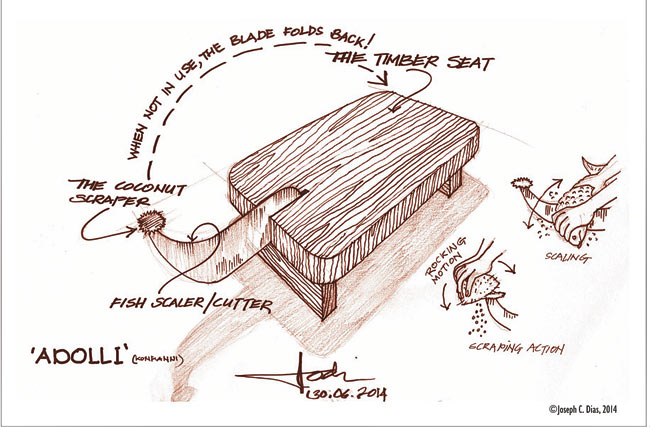 WHEN NOT IN USE, THE BLADE FOLDS BACK!
THE TIMBER SEAT
THE COCONUT
SCRAPER
FISH SCALER/CUTTER
SCALING
ROCKING
MOTION
SCRAPING ACTION
'ADOLLI' (KONKANNI)
30.06.2014
©Joseph C. Dias, 2014